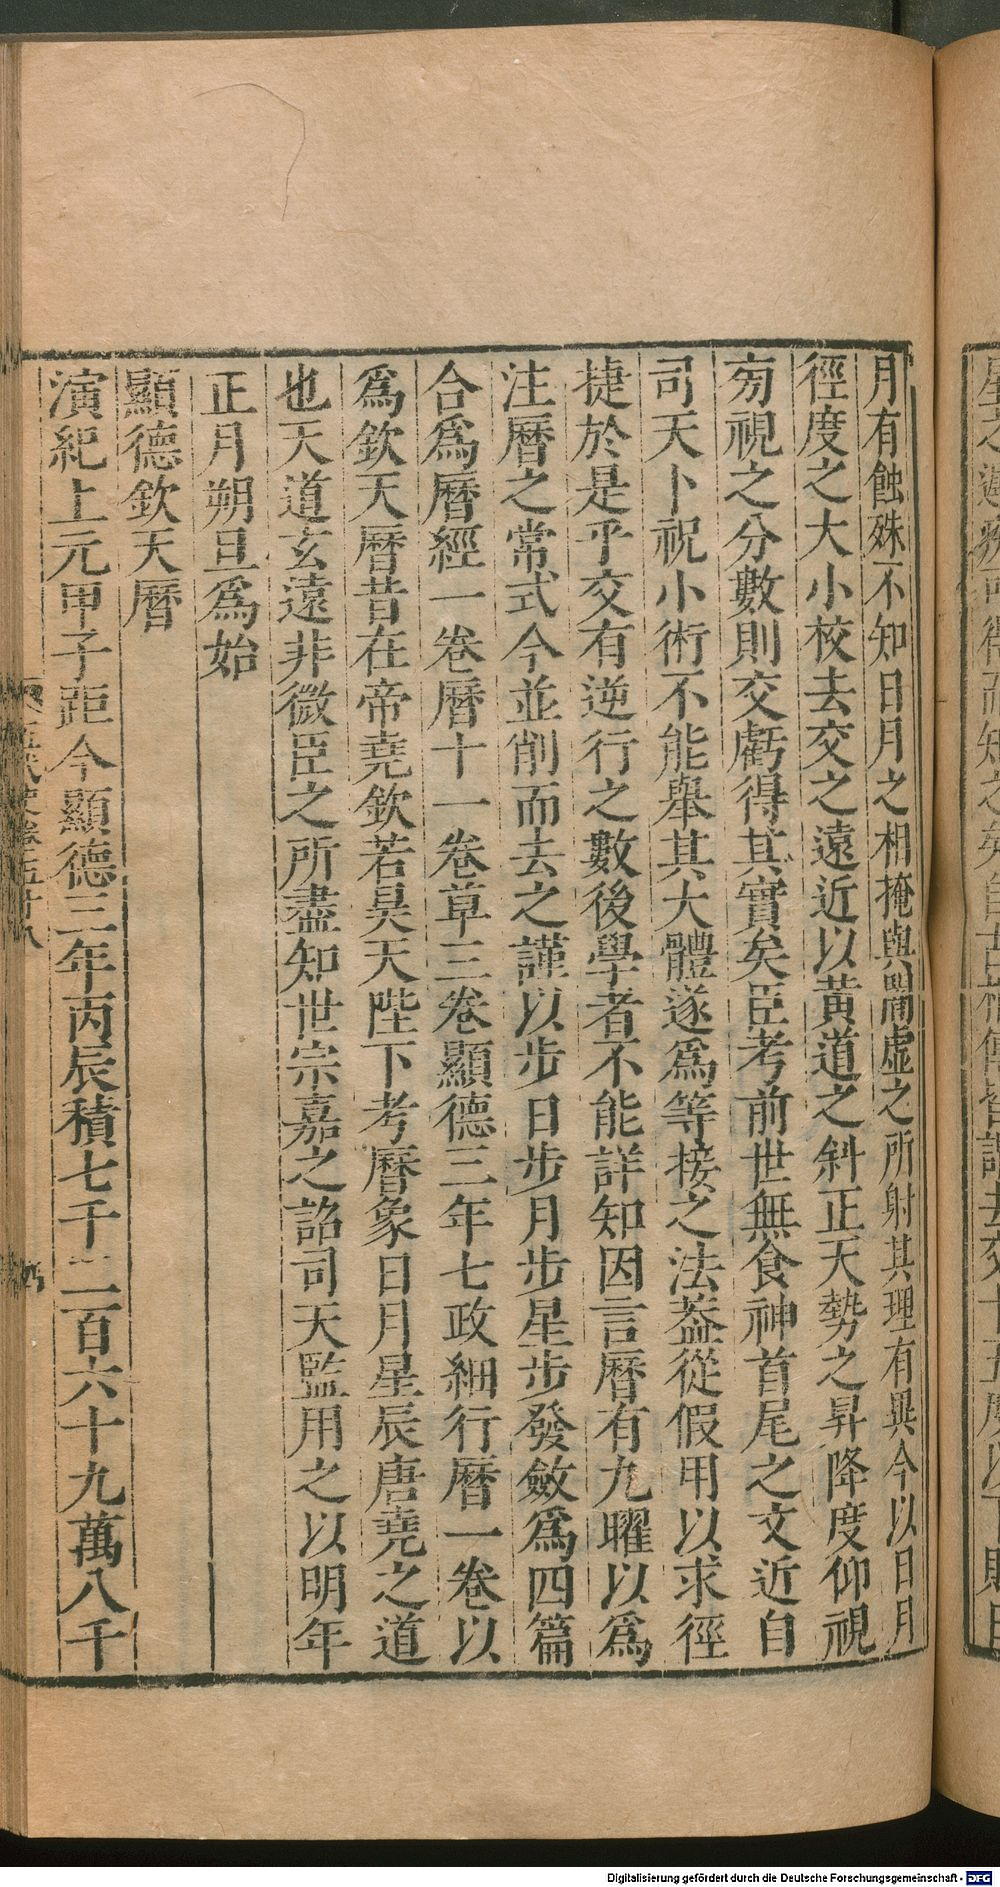 月有蝕殊不知日月之相掩與闇虛之所射其理有異今以日月
徑度之大小校去交之遠近以黃道之斜正天勢之昇降度仰視
旁視之分數則交虧得其實矣臣考前世無食神首尾之文近自
司天卜祝小術不能舉其大體遂爲等接之法葢從假用以求徑
捷於是乎交有逆行之數後學者不能詳知因言曆有九曜以爲
注曆之常式今並削而去之謹以步日步月步星步發斂爲四篇
合爲曆經一卷曆十一卷草三卷顯德三年七政細行曆一卷以
爲欽天曆昔在帝堯欽若昊天陛下考曆象日月星辰唐堯之道
也天道玄遠非微臣之所盡知世宗嘉之詔司天監用之以明年
正月朔旦爲始
顯德欽天曆
演紀上元甲子距今顯德三年丙辰積七千二百六十九萬八千
Digitalisierung gefördert durch die Deutsche Forschungsgemeinschaft - DFG